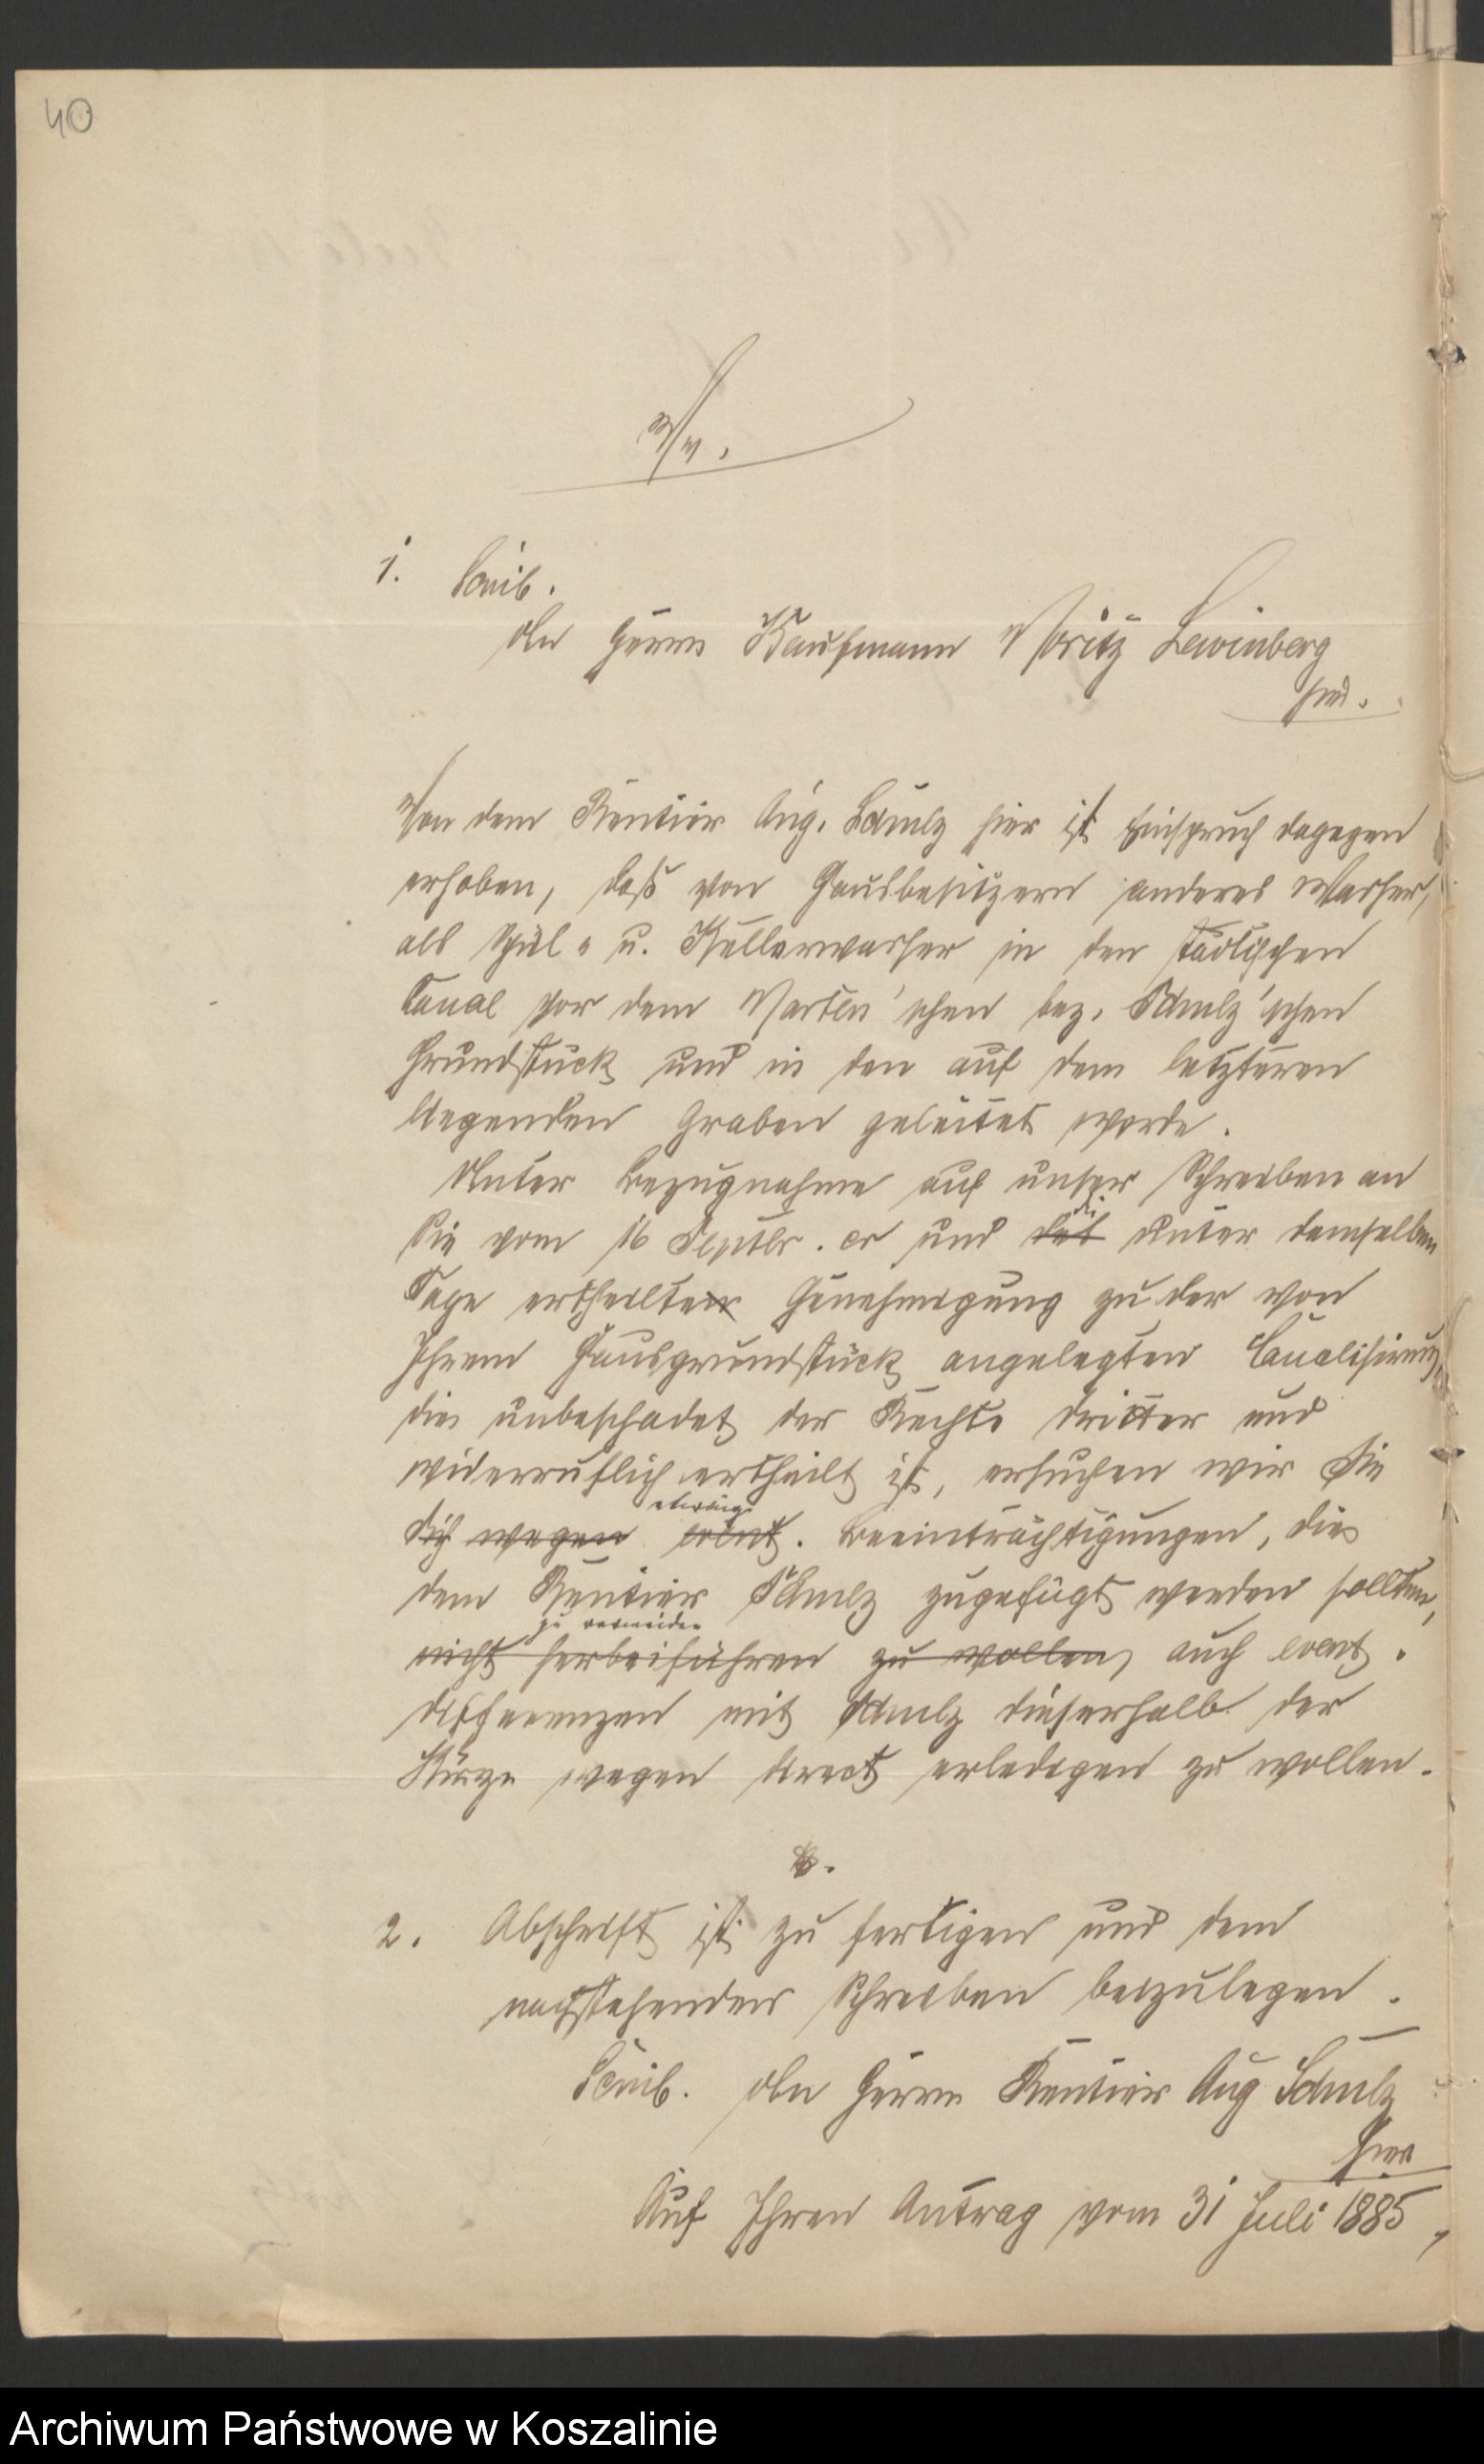 40
V/v.
1. Schreib.
An Herrn Kaufmann Moritz Lewinberg
hier.
Von dem Rentier Aug. Schulz hier ist Einspruch dagegen
erhoben, daß von Hausbesitzern anderes Wasser,
als Spül- u. Kellerwasser in den städtischen
Canal vor dem 'schen bez. Schulz'schen
Grundstück und in den auf dem letzteren
liegenden Graben geleitet werde.
Unter Bezugnahme auf unser Schreiben an
Sie vom 16 Septbr. cr und die unter demselben
Tage ertheilte Genehmigung zu der von
Ihrem Hausgrundstück angelegten Canalisirung,
die unbeschadet der Rechte dritter und
widerruflich ertheilt ist, ersuchen wir Sie
etwaige
sich wegen event. Beeinträchtigungen, die
dem Rentier Schulz zugefügt werden sollten,
zu vermeiden
nicht herbeiführen zu wollen, auch event.
Differenzen mit Schulz dieserhalb der
Kürze wegen direct erledigen zu wollen.
2. Abschrift ist zu fertigen und dem
nachstehenden Schreiben beizulegen.
Schreib. An Herrn Rentier Aug Schulz
hier
Auf Ihren Antrag vom 31 Juli 1885,
Archiwum Państwowe w Koszalinie